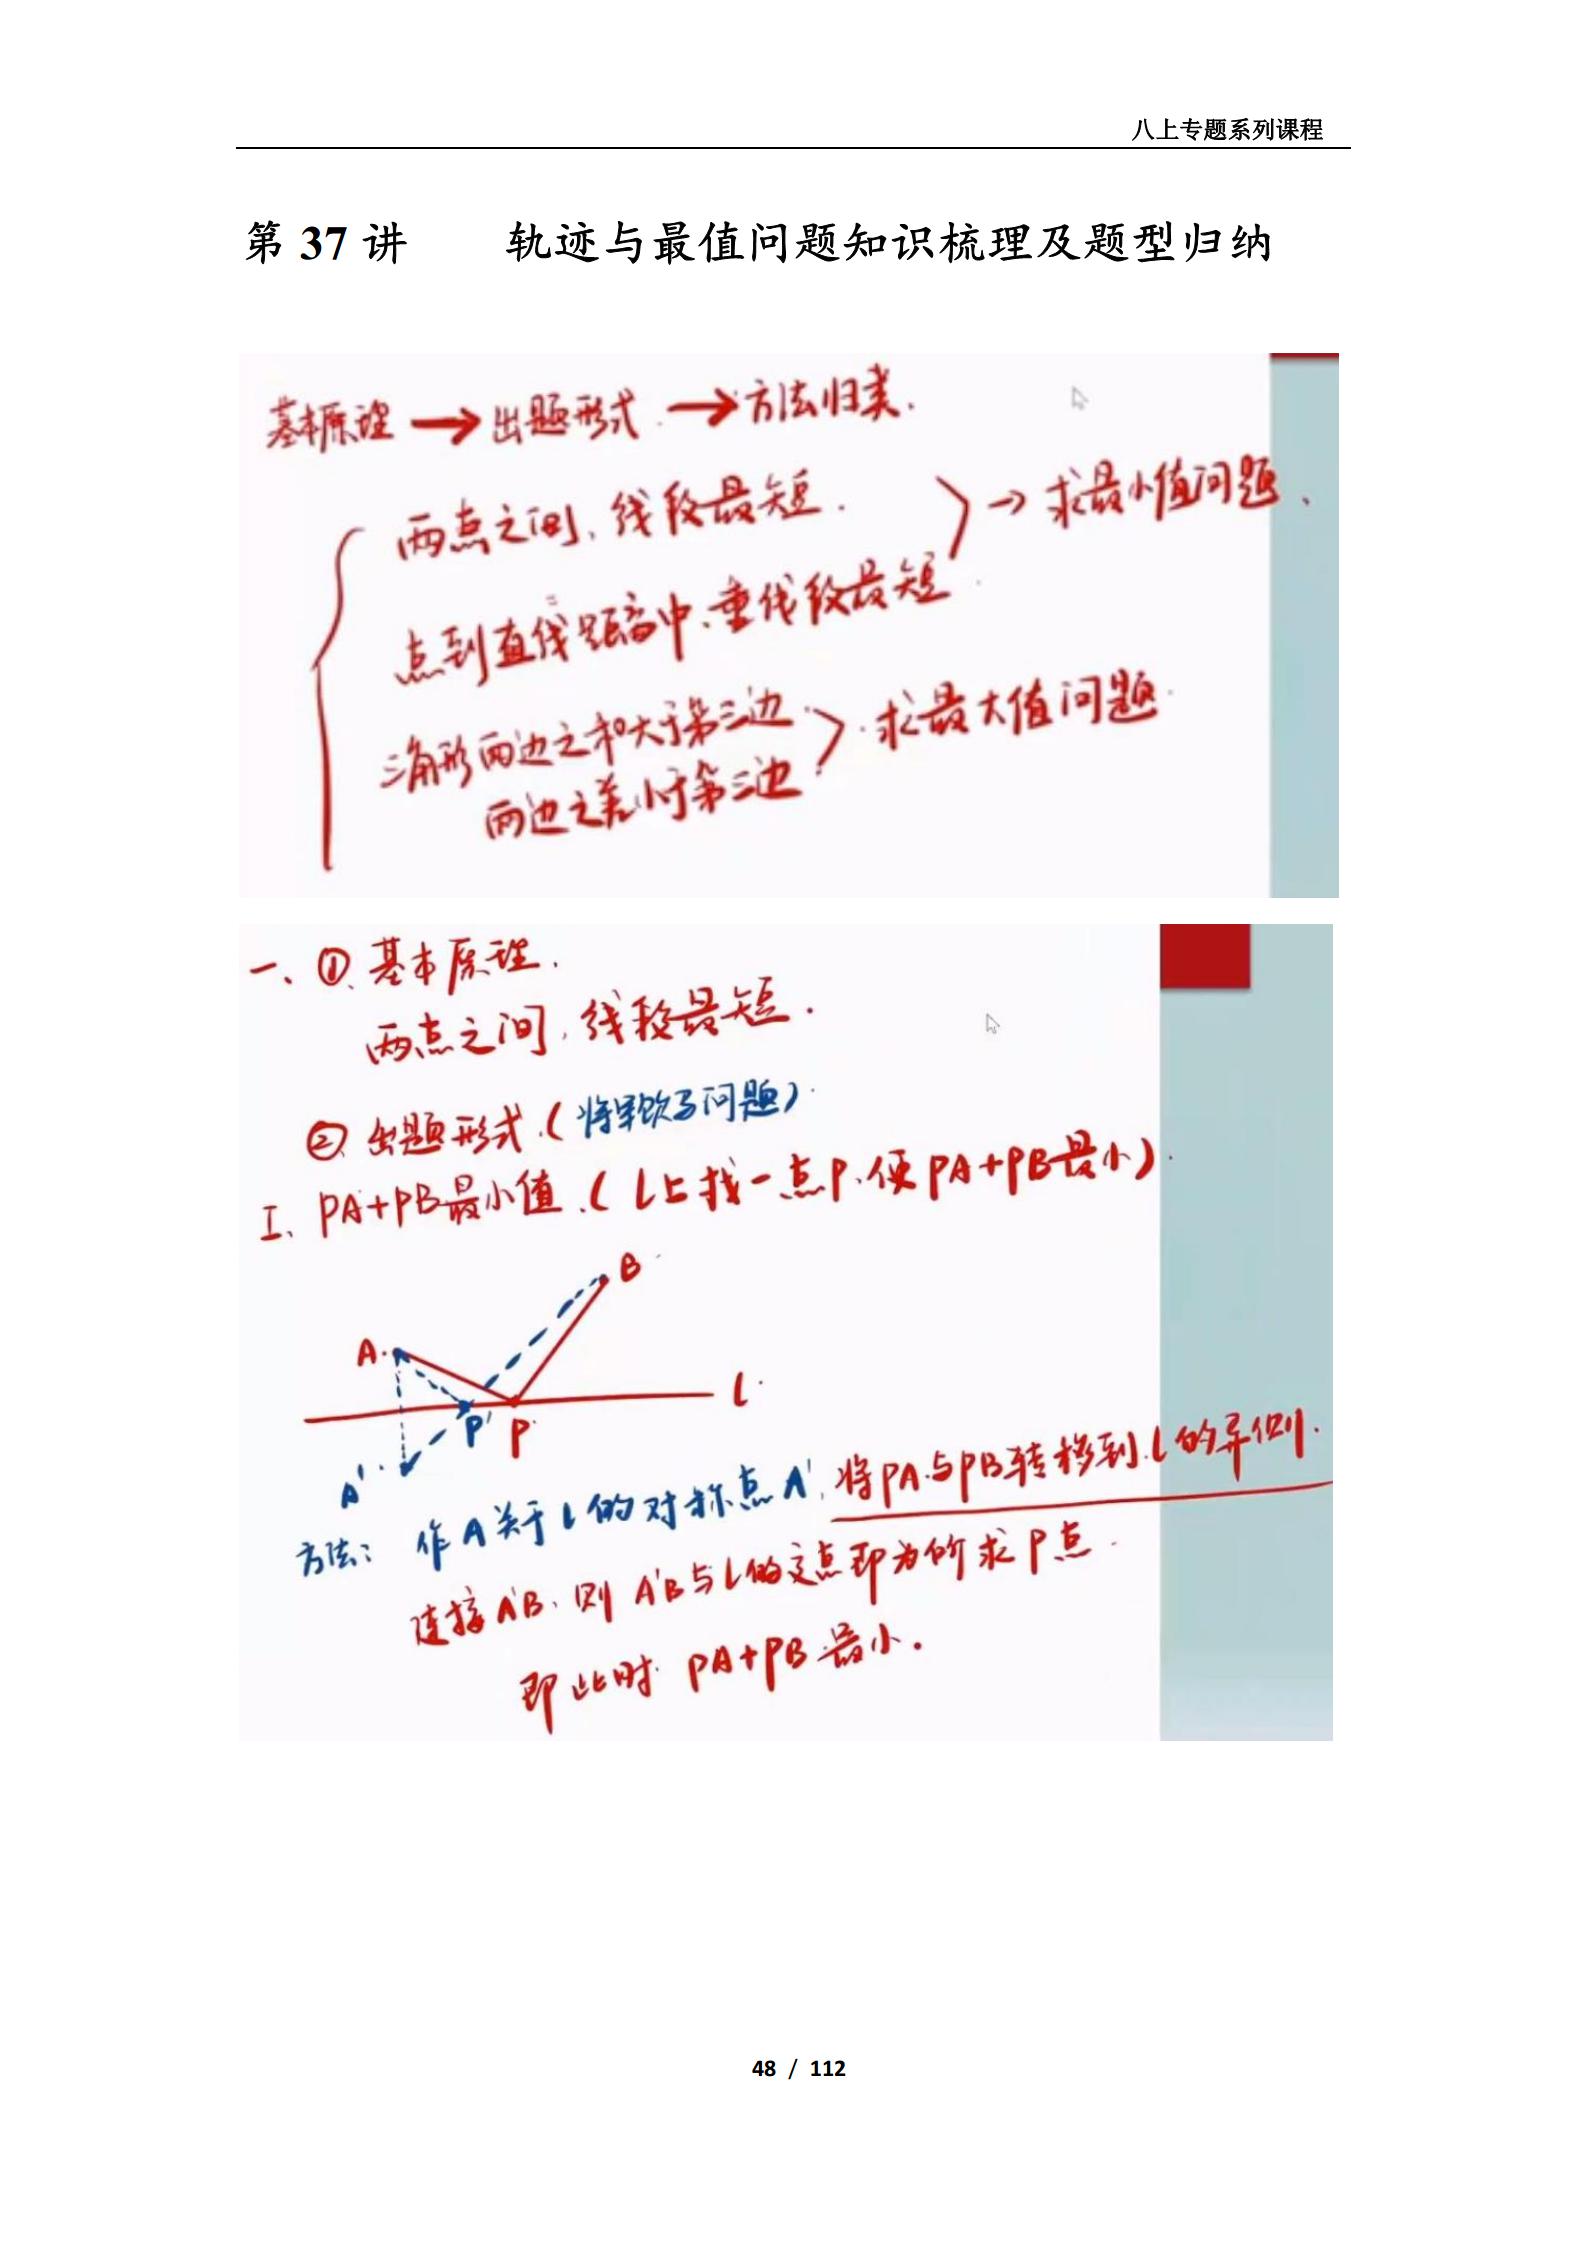 八上专题系列课程
第 37 讲 轨迹与最值问题知识梳理及题型归纳
基本原理 → 出题形式. → 方法归类.
两点之间,线段最短. → 求最小值问题.
点到直线距离中,垂线段最短
三角形两边之和大于第三边. 求最大值问题.
两边之差小于第三边
一、① 基本原理.
两点之间,线段最短.
② 出题形式.(将军饮马问题)
I、PA+PB最小值.(l上找一点P,使PA+PB最小).
B
A
l
P' P
A'
方法: 作A关于l的对称点A',将PA与PB转移到l的异侧.
连接A'B,则A'B与l的交点即为所求P点.
即此时 PA+PB 最小.
48 / 112